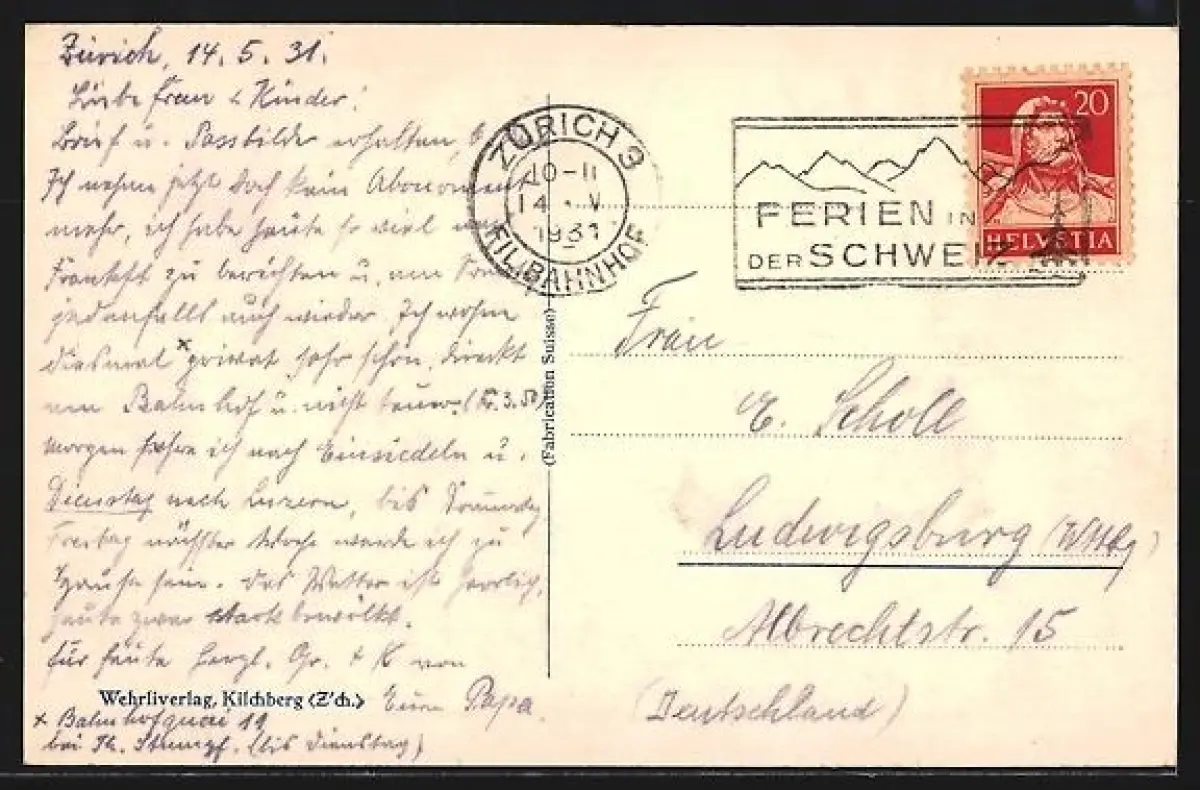 Zürich, 14.5.31.
Liebe Frau & Kinder!
Brief u. Passbilder erhalten,
Ich nehme jetzt doch kein Abonoment
mehr, ich habe heute so viel nach
Frankft zu berichten u. am
jedenfalls auch wieder. Ich wohne
diesmal × privat sehr schön, direkt
am Bahnhof u. nicht teuer. (Fr. 3.50)
Morgen fahre ich nach Einsiedeln u.
Dienstag nach Luzern, bis
Freitag nächster Woche werde ich zu
Hause sein. Das Wetter ist herrlich,
heute zwar stark bewölkt.
Für heute herzl. Gr. & K von
Eurem Papa.
Wehrliverlag, Kilchberg (Z'ch.)
× Bahnhofquai 19
bei Th. Stumpf. (bis Dienstag)
(Fabrication Suisse)
ZÜRICH 3
10-11
14. V
1931
FIL. BAHNHOF
FERIEN IN
DER SCHWEIZ
20
HELVETIA
Frau
E. Scholl
Ludwigsburg (Wttbg)
Albrechtstr. 15
(Deutschland)